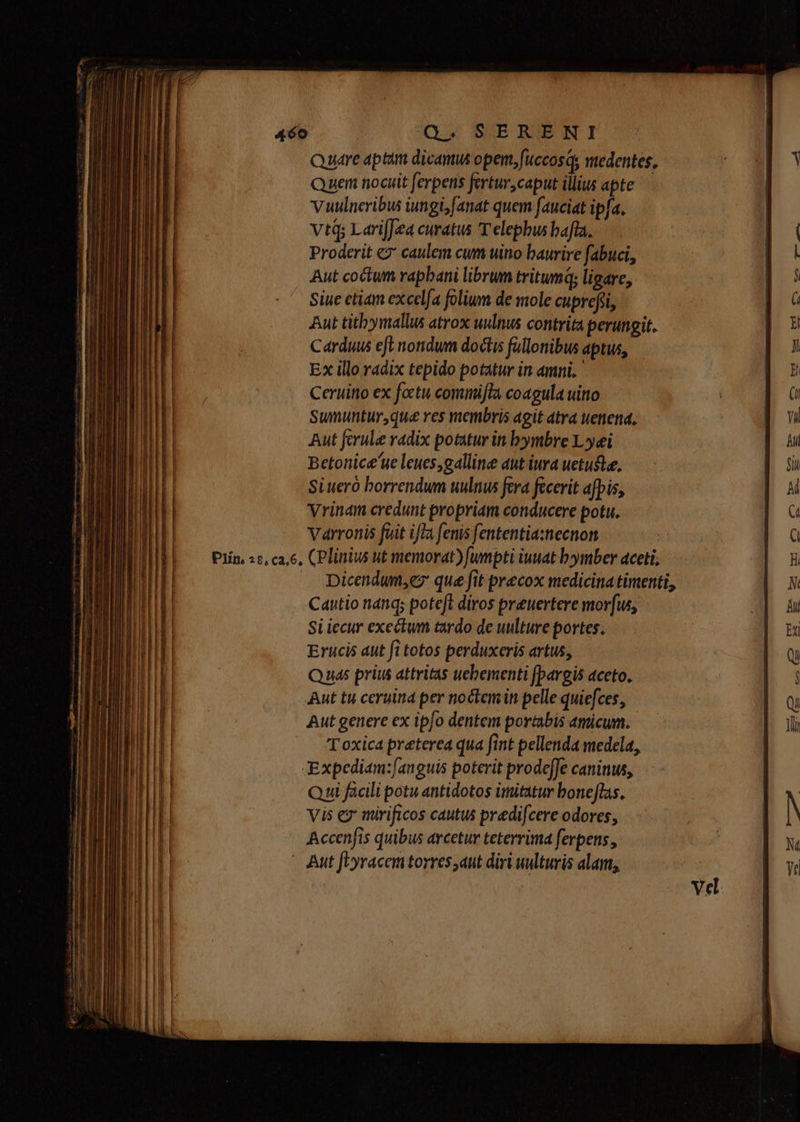 460 Q. SERENI
Quare aptam dicamus opem, ſuccosq́; medentes.
Quem nocuit ſerpens fertur, caput illius apte
Vuulneribus iungi, ſanat quem ſauciat ipſa.
Vtq́; Lariſſæa curatus Telephus haſta.
Proderit & caulem cum uino haurire ſabuci,
Aut coctum raphani librum tritumq́; ligare,
Siue etiam excelſa folium de mole cupreſſi,
Aut tithymallus atrox uulnus contrita perungit.
Carduus eſt nondum doctis fullonibus aptus,
Ex illo radix tepido potatur in amni.
Ceruino ex fœtu commiſta coagula uino
Sumuntur, quæ res membris agit atra uenena.
Aut ferulæ radix potatur in hymbre Lyæi
Betonicæ'ue leues, gallinæ aut iura uetuſtæ.
Si uerò horrendum uulnus fera fecerit aſpis,
Vrinam credunt propriam conducere potu.
Varronis fuit iſta ſenis ſententia: necnon
Plin. 28, ca, 6, (Plinius ut memorat) ſumpti iuuat hymber aceti.
Dicendum, & quæ ſit præcox medicina timenti,
Cautio nanq; poteſt diros præuertere morſus,
Si iecur exectum tardo de uulture portes.
Erucis aut ſi totos perduxeris artus,
Quas prius attritas uehementi ſpargis aceto.
Aut tu ceruina per noctem in pelle quieſces,
Aut genere ex ipſo dentem portabis amicum.
Toxica præterea qua ſint pellenda medela,
Expediam: ſanguis poterit prodeſſe caninus,
Qui facili potu antidotos imitatur honeſtas.
Vis & mirificos cautus prædiſcere odores,
Accenſis quibus arcetur teterrima ſerpens,
Aut ſtyracem torres, aut diri uulturis alam,
Vel